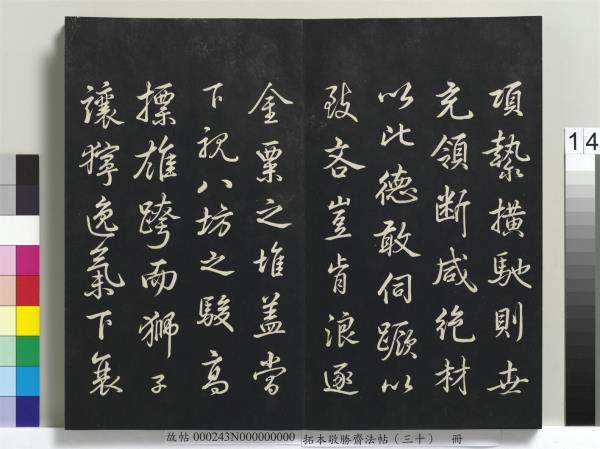 項縶擴馳則安
充領断咸絶材
以此德敢伺蹶以
致吝豈肯浪逐
金粟之堆蓋嘗
下視八坊之駿高
摽雄跨而獅子
讓獰逸氣下衰
故帖 000243N000000000
拓本敬勝齋法帖（三十） 冊
14